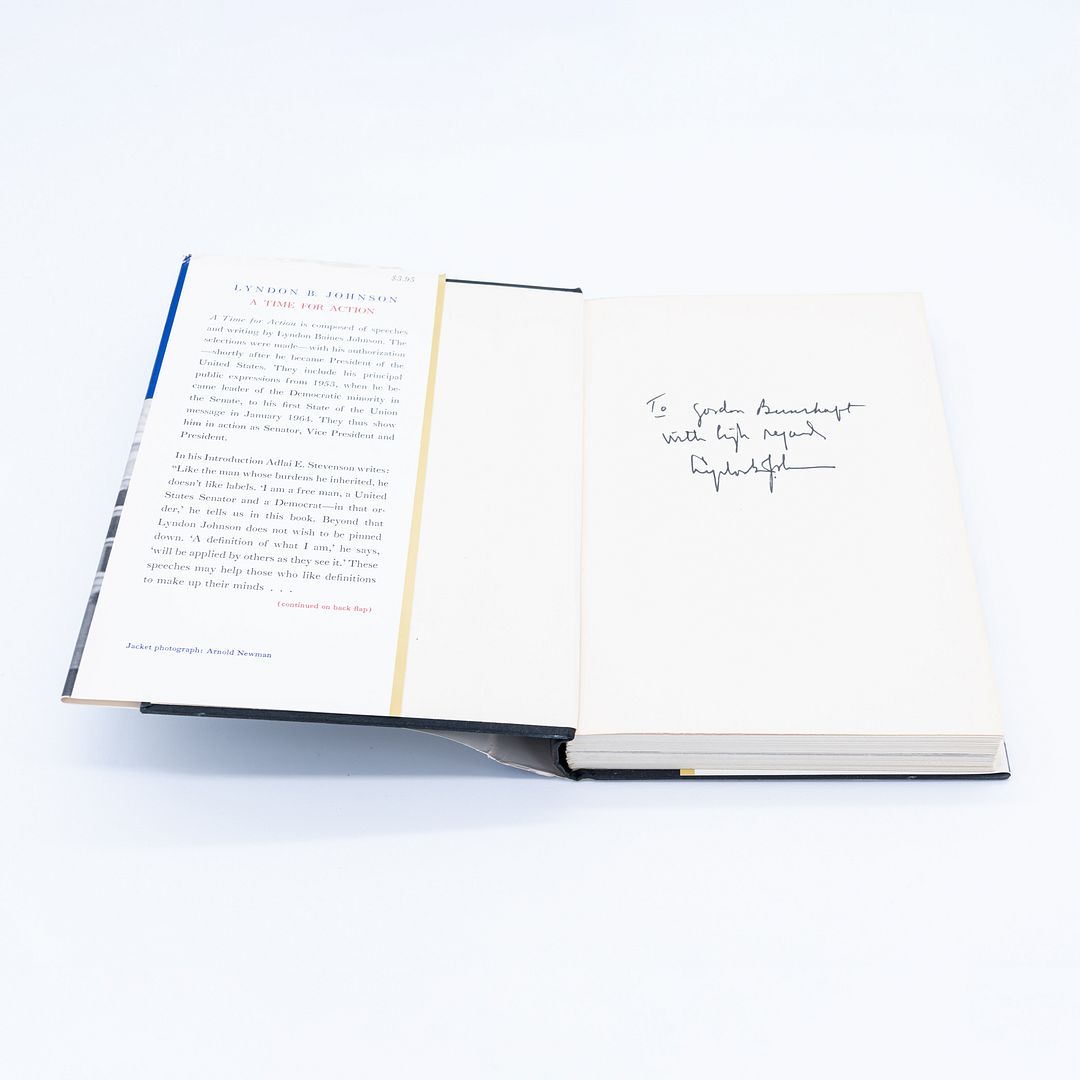 $3.95
LYNDON B. JOHNSON
A TIME FOR ACTION
A Time for Action is composed of speeches
and writing by Lyndon Baines Johnson. The
selections were made—with his authorization
—shortly after he became President of the
United States. They include his principal
public expressions from 1953, when he be-
came leader of the Democratic minority in
the Senate, to his first State of the Union
message in January 1964. They thus show
him in action as Senator, Vice President and
President.
In his Introduction Adlai E. Stevenson writes:
"Like the man whose burdens he inherited, he
doesn't like labels. 'I am a free man, a United
States Senator and a Democrat—in that or-
der,' he tells us in this book. Beyond that
Lyndon Johnson does not wish to be pinned
down. 'A definition of what I am,' he says,
'will be applied by others as they see it.' These
speeches may help those who like definitions
to make up their minds . . .
(continued on back flap)
Jacket photograph: Arnold Newman
To Gordon Bunshaft
with high regard
Lyndon B. Johnson